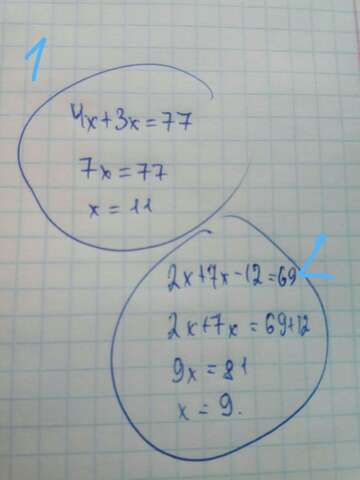 1
4x+3x=77
7x=77
x=11
2x+7x-12=69
2x+7x=69+12
9x=81
x=9.